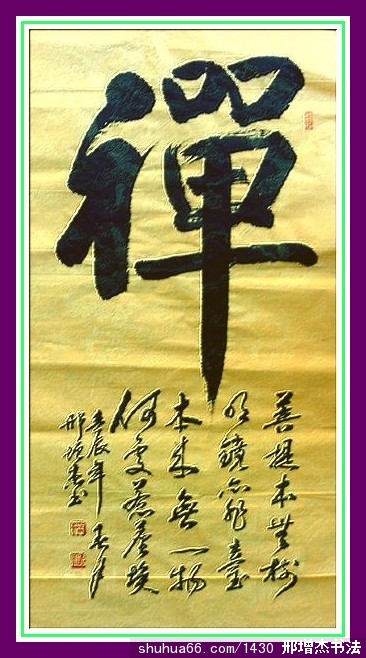 禪
菩提本無樹
明鏡亦非臺
本來無一物
何處惹塵埃
壬辰年春月
邢增杰书
shuhua66.com/1430 邢增杰书法